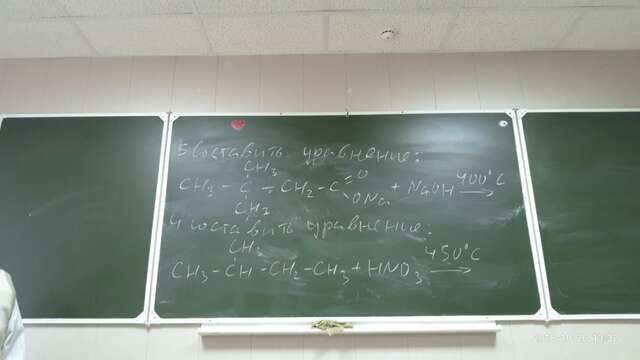 5 Составить уравнение:
CH3
CH3 - C - CH2 - C = O + NaOH 400°C
ONa
CH3
4 Составить уравнение:
CH3
CH3 - CH - CH2 - CH3 + HNO3 450°C